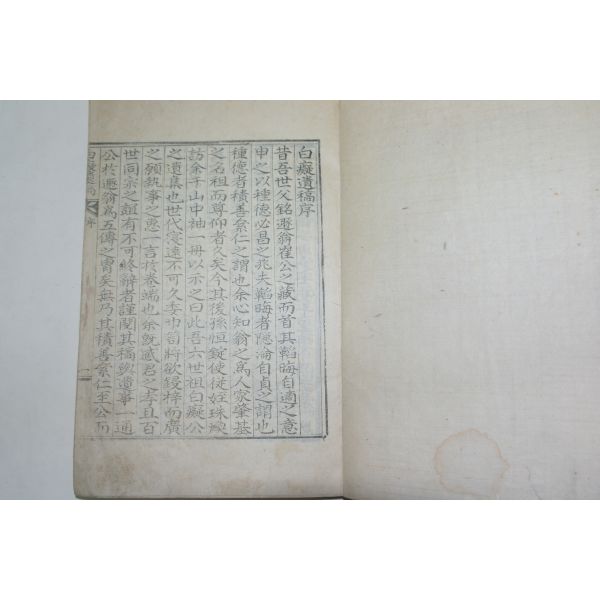 白癡遺稿序
昔吾世父銘遯翁崔公之藏而首其韜晦自適之意
申之以種德必昌之兆夫韜晦者隱淪自貞之謂也
種德者積善累仁之謂也余心知翁之爲人家肇基
之名祖而尊仰者久矣今其後孫恒錠使從姪珠
訪余于山中袖一冊以示之曰此吾六世祖白癡公
之遺集也世代寖遠不可久委巾笥將欲鋟梓而廣
之願執事之惠一言於卷端也余旣感君之孝且百
世同宗之誼有不可終辭者謹閱其稿與遺事一通
公於遯翁爲五傳之冑矣無乃其積善累仁至公而
序